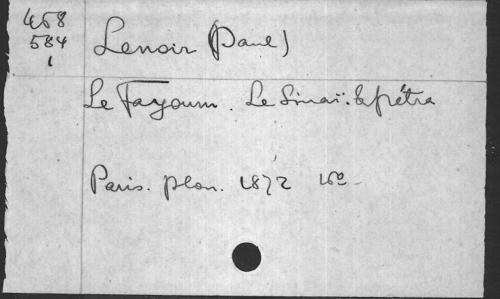 458
584
1
Lenoir (Paul)
Le Fayoum. Le Sinaï: &  pétra
Paris. plon. 1872